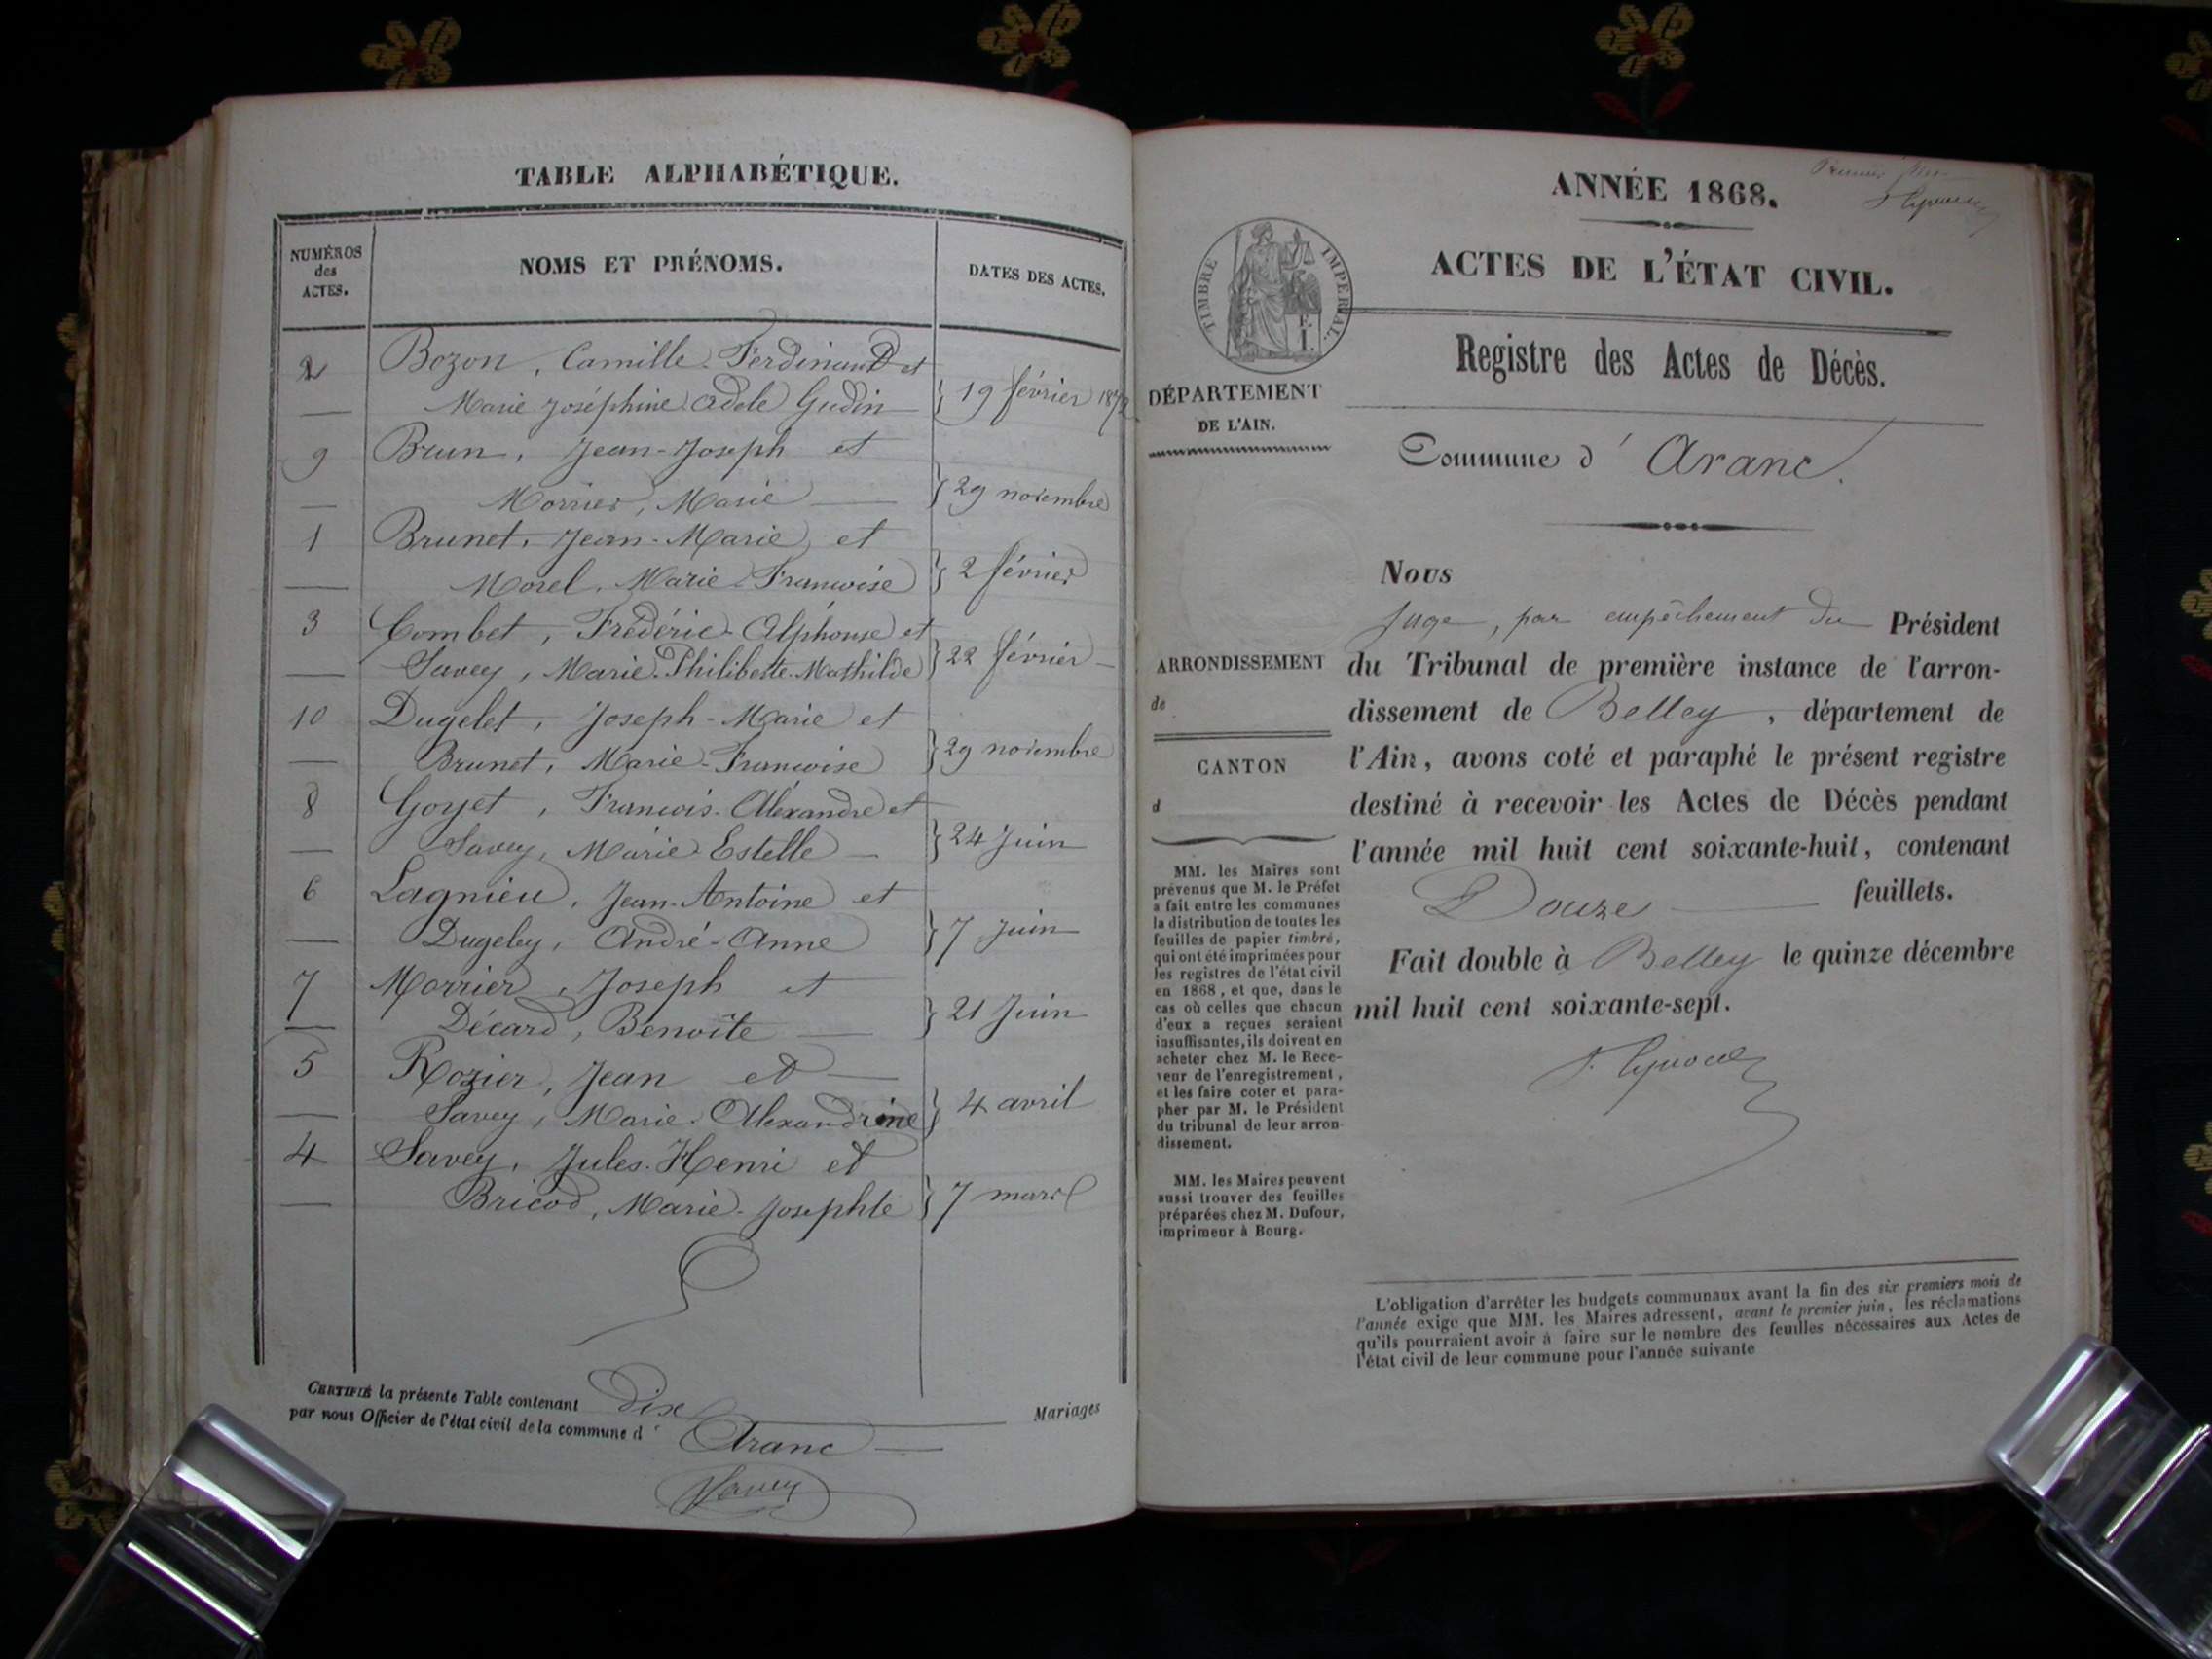 TABLE ALPHABÉTIQUE.
NUMÉROS
des
ACTES.
NOMS ET PRÉNOMS.
DATES DES ACTES.
2 Bozon, Camille Ferdinand et
Marie Joséphine Adèle Gudin } 19 février
9 Brun, Jean-Joseph et
Morrier, Marie } 29 novembre
1 Brunet, Jean-Marie, et
Morel, Marie-Françoise } 2 février
3 Combet, Frédéric-Alphonse et
Savey, Marie-Philiberte-Mathilde } 22 février
10 Dugelet, Joseph-Marie et
Brunet, Marie-Françoise } 29 novembre
8 Goyet, François-Alexandre et
Savey, Marie Estelle } 24 Juin
6 Lagnieu, Jean-Antoine et
Dugeley, André-Anne } 7 Juin
7 Morrier, Joseph et
Décard, Benoîte } 21 Juin
5 Rozier, Jean et
Savey, Marie-Alexandrine } 4 avril
4 Savey, Jules-Henri et
Bricod, Marie-Josephte } 7 mars
CERTIFIÉ la présente Table contenant dix Mariages
par nous Officier de l'état civil de la commune d' Aranc
Savey
Premier
ANNÉE 1868.
ACTES DE L'ÉTAT CIVIL.
TIMBRE IMPÉRIAL.
E.
I.
Registre des Actes de Décès.
DÉPARTEMENT
DE L'AIN.
Commune d' Aranc.
Nous
Juge, par empêchement du Président
du Tribunal de première instance de l'arron-
dissement de Belley, département de
l'Ain, avons coté et paraphé le présent registre
destiné à recevoir les Actes de Décès pendant
l'année mil huit cent soixante-huit, contenant
Douze feuillets.
Fait double à Belley le quinze décembre
mil huit cent soixante-sept.
ARRONDISSEMENT
de
CANTON
d
MM. les Maires sont
prévenus que M. le Préfet
a fait entre les communes
la distribution de toutes les
feuilles de papier timbré,
qui ont été imprimées pour
les registres de l'état civil
en 1868, et que, dans le
cas où celles que chacun
d'eux a reçues seraient
insuffisantes, ils doivent en
acheter chez M. le Rece-
veur de l'enregistrement,
et les faire coter et para-
pher par M. le Président
du tribunal de leur arron-
dissement.
MM. les Maires peuvent
aussi trouver des feuilles
préparées chez M. Dufour,
imprimeur à Bourg.
L'obligation d'arrêter les budgets communaux avant la fin des six premiers mois de
l'année exige que MM. les Maires adressent, avant le premier juin, les réclamations
qu'ils pourraient avoir à faire sur le nombre des feuilles nécessaires aux Actes de
l'état civil de leur commune pour l'année suivante